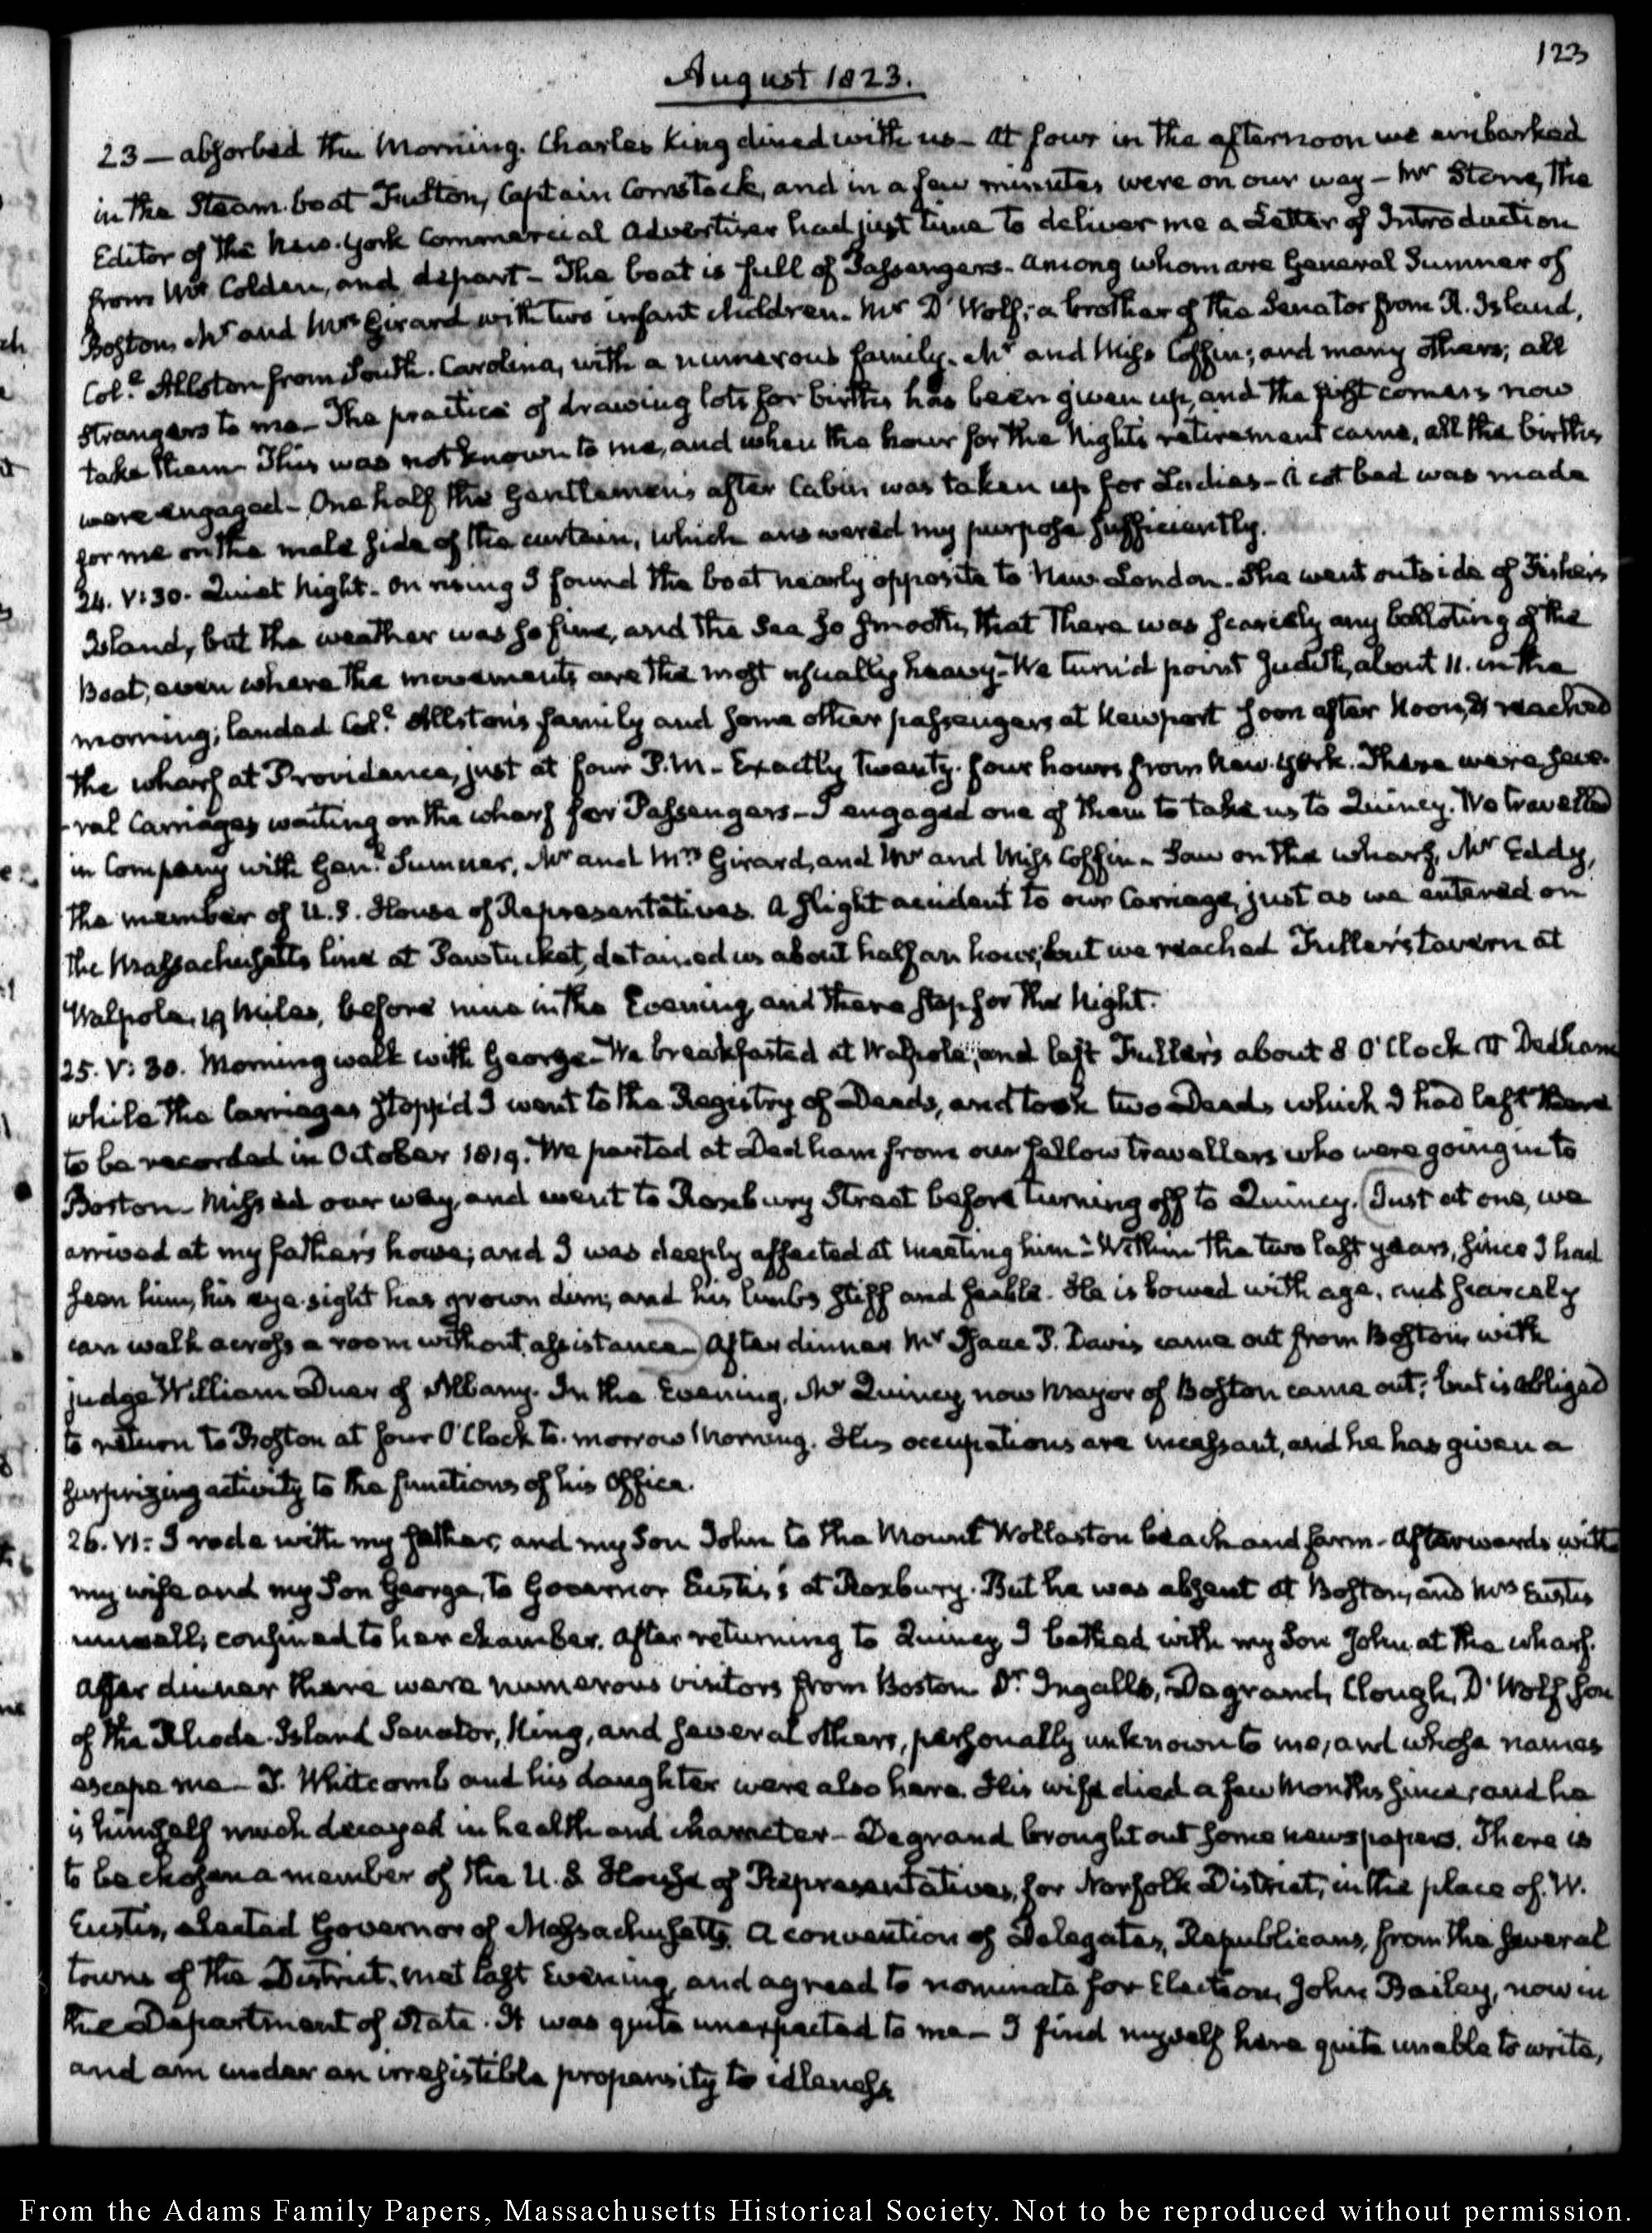 123
August 1823.
23 — absorbed the Morning. Charles King dined with us — At four in the afternoon we embarked
in the Steam-boat Fulton, Captain Comstock, and in a few minutes were on our way — Mr Stone, the
Editor of the New-York Commercial Advertiser had just time to deliver me a Letter of Introduction
from Mr Colden, and depart — The boat is full of Passengers — Among whom are General Sumner of
Boston, Mr and Mrs Girard with two infant children. Mr D'Wolf; a brother of the Senator from R. Island,
Coll. Allston from South-Carolina, with a numerous family. Mr and Miss Coffin; and many others; all
strangers to me — The practice of drawing lots for births has been given up, and the first comers now
take them — This was not known to me, and when the hour for the Night's retirement came, all the births
were engaged — One half the Gentlemen's after Cabin was taken up for Ladies — A cot bed was made
for me on the male side of the curtain, which answered my purpose sufficiently.
24. V:30. Quiet Night. On rising I found the boat nearly opposite to New-London. She went outside of Fisher's
Island, but the weather was so fine, and the Sea so smooth, that there was scarcely any balloting of the
Boat, even where the movements are the most usually heavy — We turn'd point Judith, about 11. in the
morning; landed Coll. Allston's family and some other passengers at Newport soon after Noon, & reached
the wharf at Providence, just at four P.M. — Exactly twenty-four hours from New-York. There were seve-
-ral Carriages waiting on the wharf for Passengers — I engaged one of them to take us to Quincy. We travelled
in Company with Genl. Sumner, Mr and Mrs Girard, and Mr and Miss Coffin — Saw on the wharf, Mr Eddy,
the member of U.S. House of Representatives. A slight accident to our Carriage, just as we entered on
the Massachusetts line at Pawtucket, detained us about half an hour, but we reached Fuller's tavern at
Walpole, 19 Miles, before nine in the Evening, and there stop for the Night.
25. V:30. Morning walk with George — We breakfasted at Walpole, and left Fuller's about 8 O'Clock At Dedham
while the Carriages stopp'd I went to the Registry of Deeds, and took two Deeds which I had left there
to be recorded in October 1819. We parted at Dedham from our fellow travellers who were going in to
Boston — Missed our way, and went to Roxbury Street before turning off to Quincy. (Just at one, we
arrived at my father's house; and I was deeply affected at meeting him — Within the two last years, since I had
seen him, his eye-sight has grown dim; and his limbs stiff and feeble. He is bowed with age, and scarcely
can walk across a room without assistance —) After dinner Mr Isaac P. Davis came out from Boston, with
judge William Duer of Albany. In the Evening, Mr Quincy, now Mayor of Boston came out; but is obliged
to return to Boston at four O'Clock to-morrow Morning. His occupations are incessant, and he has given a
surprizing activity to the functions of his Office.
26. VI: I rode with my father, and my Son John to the Mount Wollaston beach and farm — Afterwards with
my wife and my Son George, to Governor Eustis's at Roxbury. But he was absent at Boston, and Mrs Eustis
unwell; confined to her chamber. After returning to Quincy, I bathed with my Son John at the wharf.
After dinner there were numerous visitors from Boston Dr. Ingalls, Degrand, Clough, D'Wolf son
of the Rhode-Island Senator, King, and several others, personally unknown to me, and whose names
escape me — T. Whitcomb and his daughter were also here. His wife died a few Months since, and he
is himself much decayed in health and character — Degrand brought out some newspapers. There is
to be chosen a member of the U.S. House of Representatives, for Norfolk District, in the place of W.
Eustis, elected Governor of Massachusetts. A convention of Delegates, Republicans, from the several
towns of the District, met last Evening, and agreed to nominate for Election, John Bailey, now in
the Department of State. It was quite unexpected to me — I find myself here quite unable to write,
and am under an irresistible propensity to idleness.
From the Adams Family Papers, Massachusetts Historical Society. Not to be reproduced without permission.